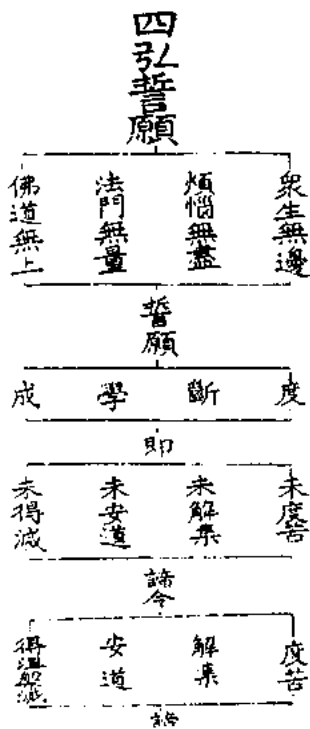 四弘誓願
衆生無邊
煩惱無盡
法門無量
佛道無上
誓願
度
斷
學
成
即
未度苦
未解集
未安道
未得滅
諦令
度苦
解集
安道
得涅槃滅
諦